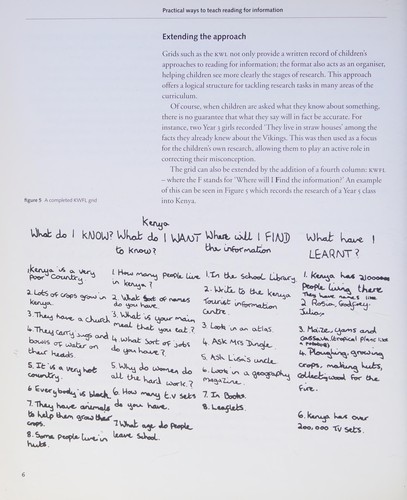 Practical ways to teach reading for information
Extending the approach
Grids such as the KWL not only provide a written record of children's
approaches to reading for information; the format also acts as an organiser,
helping children see more clearly the stages of research. This approach
offers a logical structure for tackling research tasks in many areas of the
curriculum.
Of course, when children are asked what they know about something,
there is no guarantee that what they say will in fact be accurate. For
instance, two Year 3 girls recorded 'They live in straw houses' among the
facts they already knew about the Vikings. This was then used as a focus
for the children's own research, allowing them to play an active role in
correcting their misconception.
The grid can also be extended by the addition of a fourth column: KWFL
– where the F stands for 'Where will I Find the information?' An example
of this can be seen in Figure 5 which records the research of a Year 5 class
into Kenya.
figure 5 A completed KWFL grid
Kenya
What do I KNOW?
1. Kenya is a very
poor country
2. Lots of crops grow in
kenya.
3. They have a church
4. They carry jugs and
bowls of water on
their heads.
5. It is a very hot
country.
6. Everybody is black
7. They have animals
to help them grow their
crops.
8. Some people live in
huts.
What do I WANT
to know?
1. How many people live
in kenya?
2. What sort of names
do you have
3. What is your main
meal that you eat?
4. What sort of jobs
do you have?
5. Why do women do
all the hard work?
6. How many t.v sets
do you have.
7. What age do people
leave school.
Where will I FIND
the information
1. In the school Library
2. Write to the Kenya
Tourist information
Centre.
3. Look in an atlas.
4. Ask Mrs Dingle
5. Ask Lisa's uncle
6. Look in a geography
magazine.
7. In Books
8. Leaflets.
What have I
LEARNT?
1. Kenya has
people living there
They have names like
2. Rosin, Godfrey,
Julias
3. Maize, yams and
cassava (tropical plant like
a potatoe)
4. Ploughing, growing
crops, making huts,
collecting wood for the
fire.
6. Kenya has over
200.000 TV sets.
6